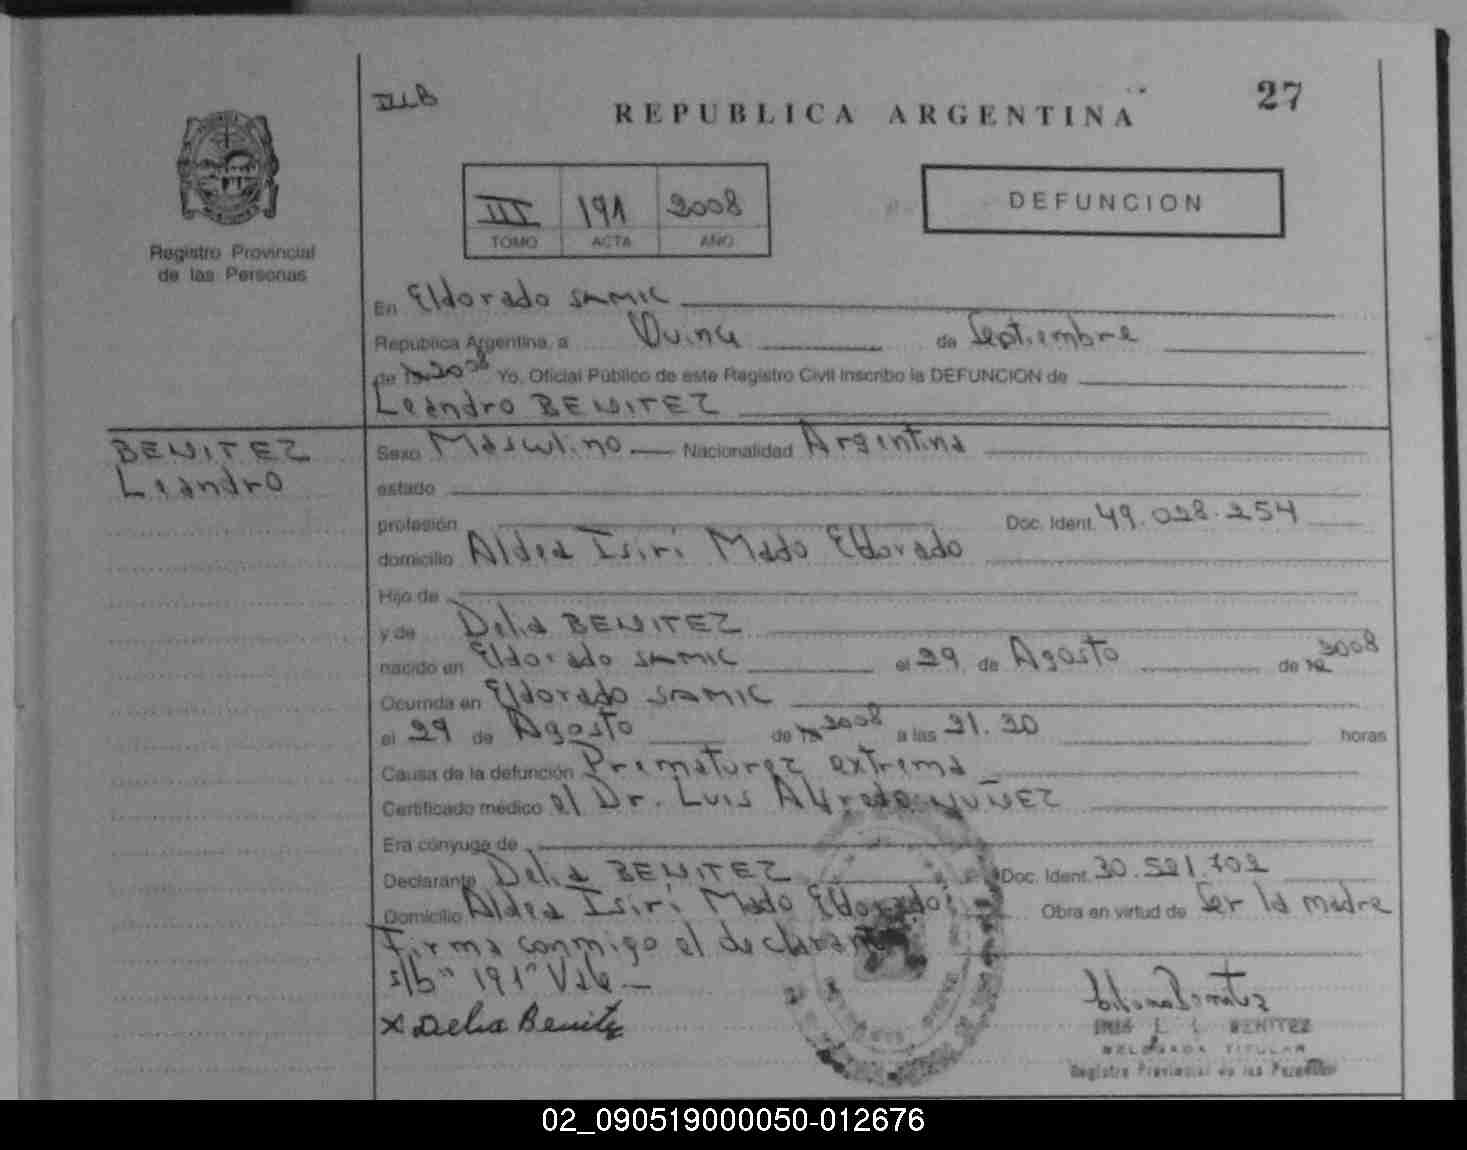 27
REPUBLICA ARGENTINA
III 191 2008
TOMO ACTA AÑO
DEFUNCION
Registro Provincial
de las Personas
En Eldorado SAMIC
República Argentina, a Quince de Septiembre
de 19 2008 Yo, Oficial Público de este Registro Civil inscribo la DEFUNCION de
Leandro BENITEZ
BENITEZ
Leandro
Sexo Masculino Nacionalidad Argentina
estado
profesión Doc. Ident. 49.028.254
domicilio Aldea Isiri Mado Eldorado
Hijo de
y de Delia BENITEZ
nacido en Eldorado SAMIC el 29 de Agosto de 19 2008
Ocurrida en Eldorado SAMIC
el 29 de Agosto de 19 2008 a las 21.30 horas
Causa de la defunción Prematurez extrema
Certificado médico el Dr. Luis Alfredo NUÑEZ
Era cónyuge de
Declarante Delia BENITEZ Doc. Ident. 30.521.702
Domicilio Aldea Isiri Mado Eldorado Obra en virtud de Ser la madre
Firma conmigo el declarante
s/b "191" Vale
x Delia Benitez
BENITEZ
TITULAR
Registro Provincial de las Personas
02_090519000050-012676